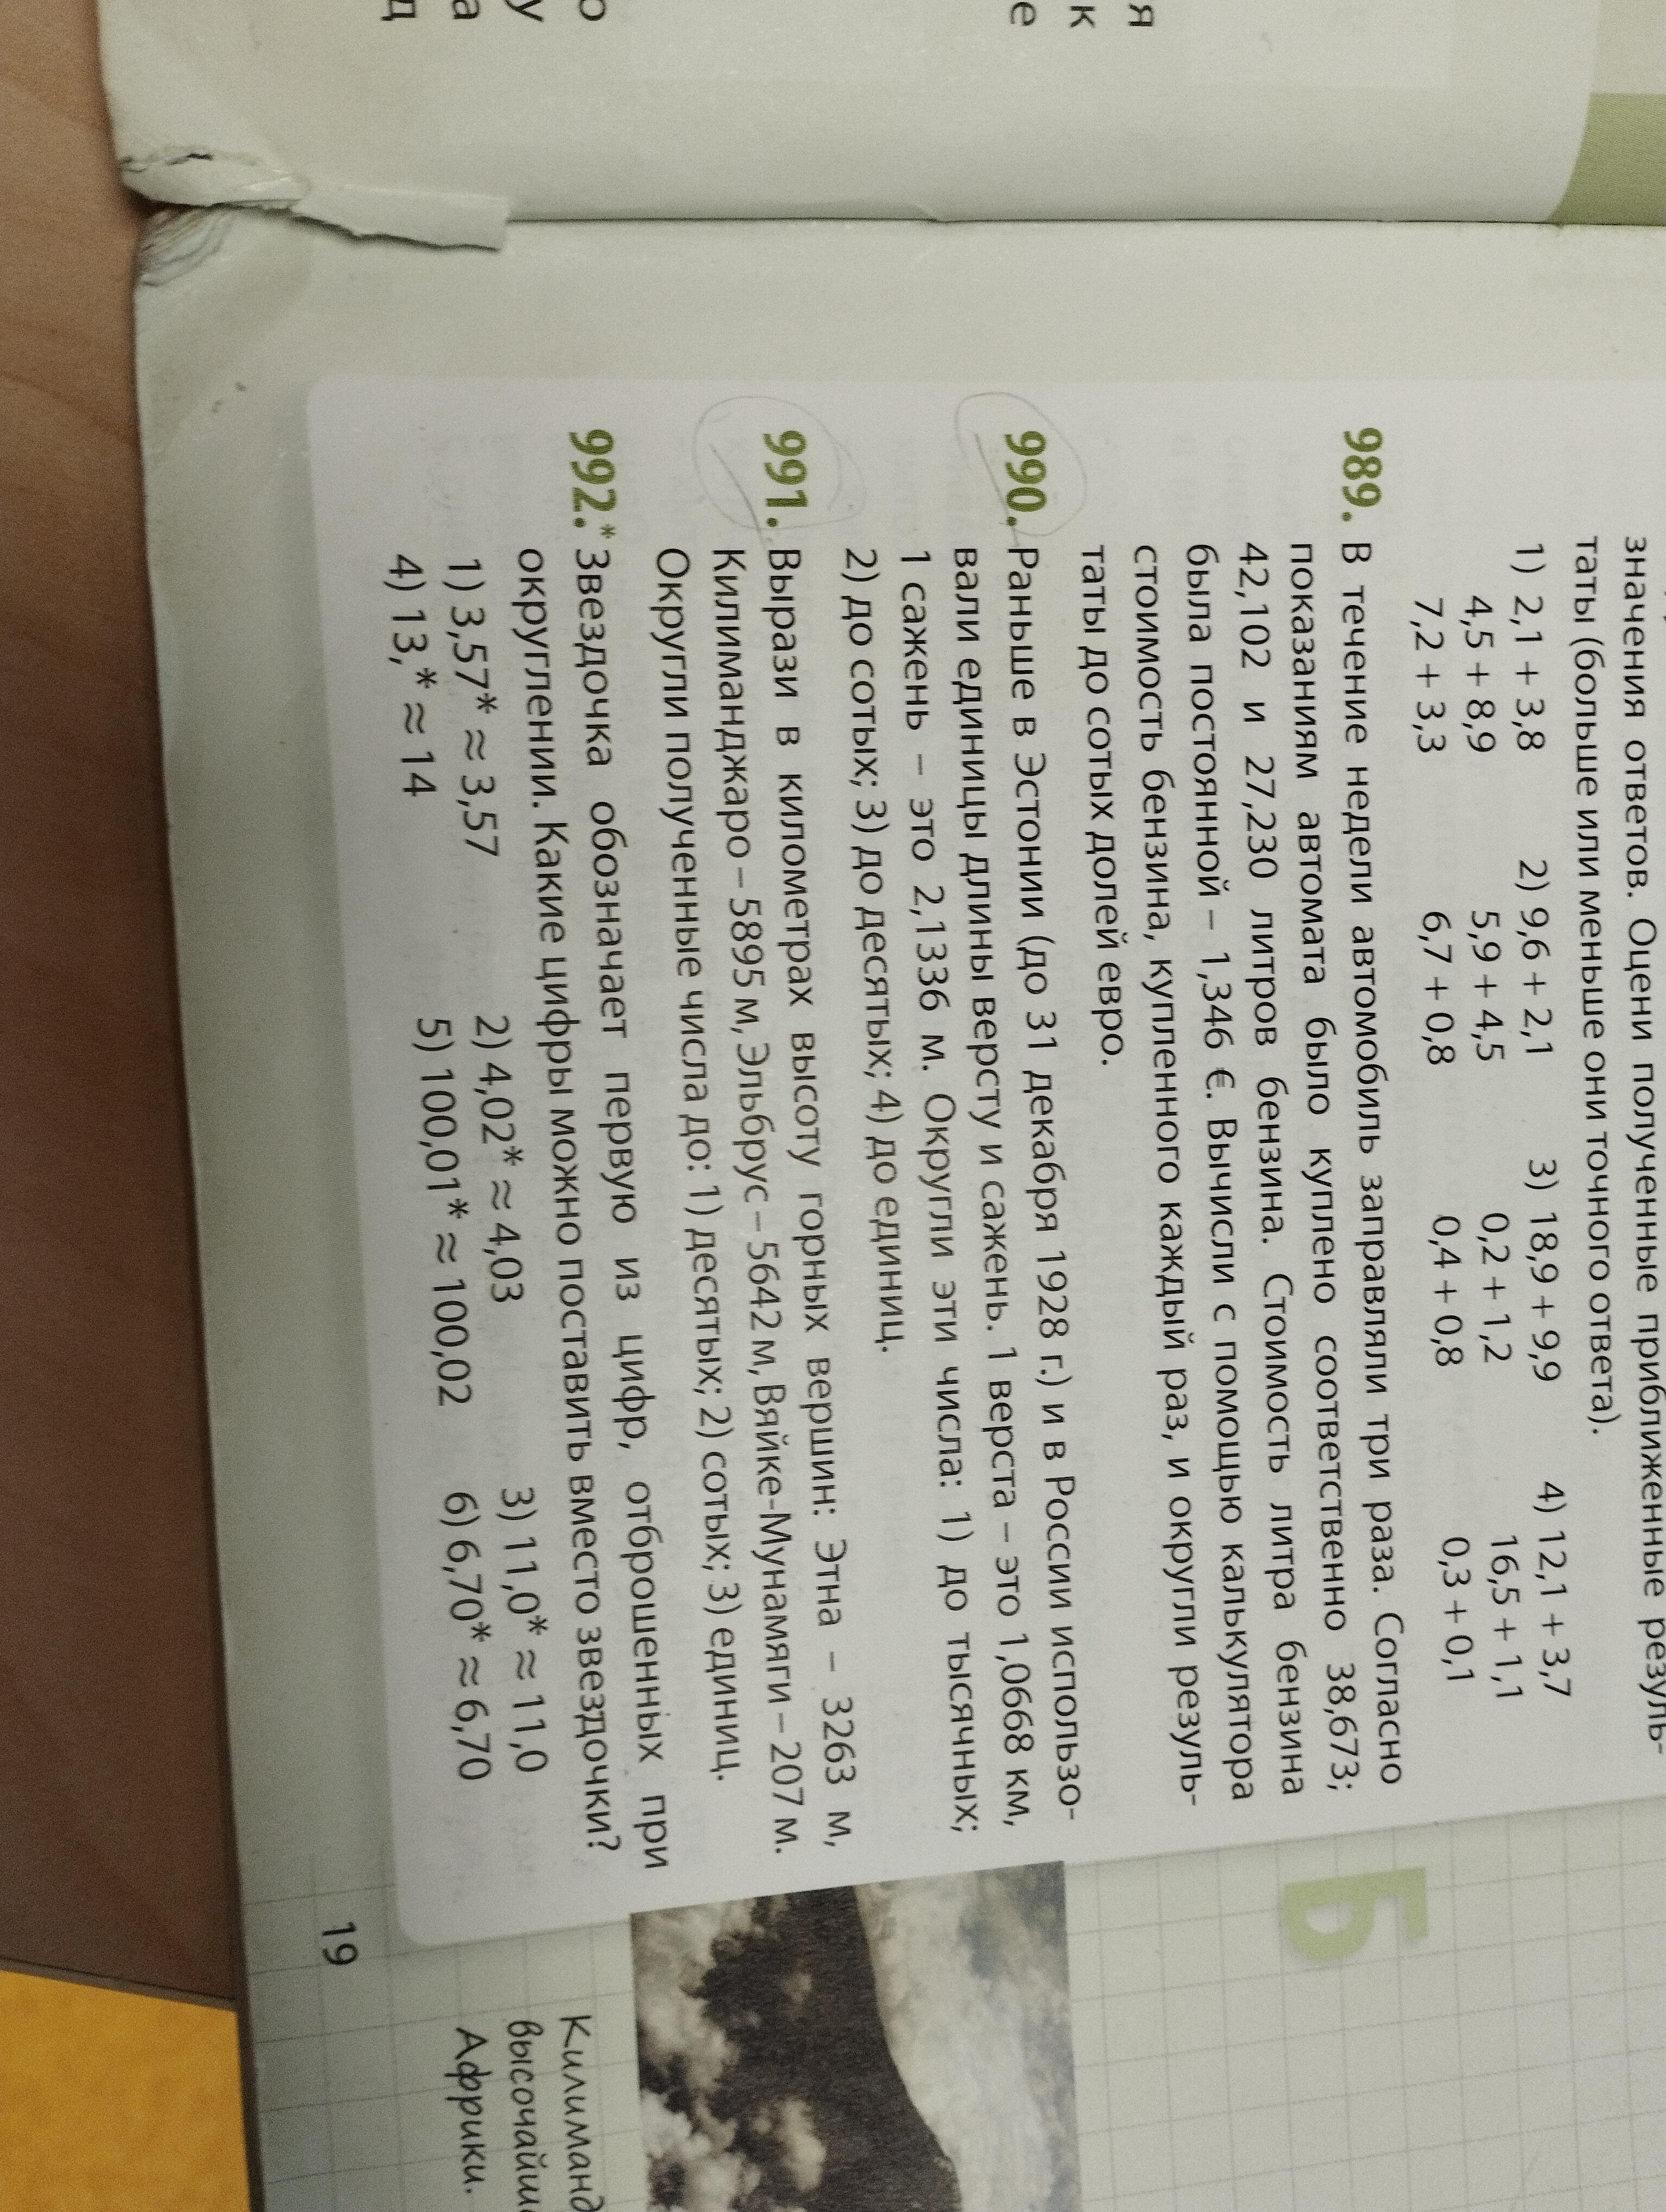 значения ответов. Оцени полученные приближенные резуль-
таты (больше или меньше они точного ответа).
1) 2,1 + 3,8 2) 9,6 + 2,1 3) 18,9 + 9,9 4) 12,1 + 3,7
4,5 + 8,9 5,9 + 4,5 0,2 + 1,2 16,5 + 1,1
7,2 + 3,3 6,7 + 0,8 0,4 + 0,8 0,3 + 0,1
989. В течение недели автомобиль заправляли три раза. Согласно
показаниям автомата было куплено соответственно 38,673;
42,102 и 27,230 литров бензина. Стоимость литра бензина
была постоянной – 1,346 €. Вычисли с помощью калькулятора
стоимость бензина, купленного каждый раз, и округли резуль-
таты до сотых долей евро.
990. Раньше в Эстонии (до 31 декабря 1928 г.) и в России использо-
вали единицы длины версту и сажень. 1 верста – это 1,0668 км,
1 сажень – это 2,1336 м. Округли эти числа: 1) до тысячных;
2) до сотых; 3) до десятых; 4) до единиц.
991. Вырази в километрах высоту горных вершин: Этна – 3263 м,
Килиманджаро – 5895 м, Эльбрус – 5642 м, Вяйке-Мунамяги – 207 м.
Округли полученные числа до: 1) десятых; 2) сотых; 3) единиц.
992.* Звездочка обозначает первую из цифр, отброшенных при
округлении. Какие цифры можно поставить вместо звездочки?
1) 3,57* ≈ 3,57 2) 4,02* ≈ 4,03 3) 11,0* ≈ 11,0
4) 13,* ≈ 14 5) 100,01* ≈ 100,02 6) 6,70* ≈ 6,70
Б
Килиманд
высочайш
Африки.
19
я
к
е
о
у
а
д